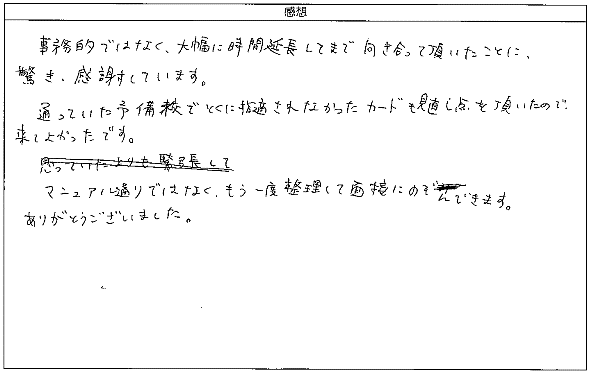 感想
事務的ではなく、大幅に時間延長してまで向き合って頂いたことに、
驚き、感謝しています。
通っていた予備校でとくに指摘されなかったカードも見直し点を頂いたので
来てよかったです。
思っていたよりも緊張して
マニュアル通りではなく、もう一度整理して面接にのぞんできます。
ありがとうございました。